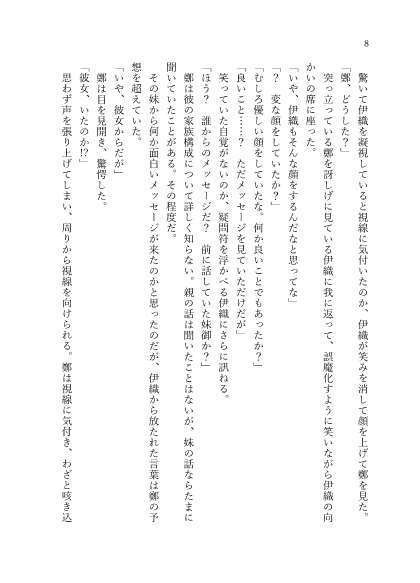 8
驚いて伊織を凝視していると視線に気付いたのか、伊織が笑みを消して顔を上げて鄭を見た。
「鄭、どうした？」
突っ立っている鄭を訝しげに見ている伊織に我に返って、誤魔化すように笑いながら伊織の向
かいの席に座った。
「いや、伊織もそんな顔をするんだなと思ってな」
「？　変な顔をしていたか？」
「むしろ優しい顔をしていたな。何か良いことでもあったか？」
「良いこと……？　ただメッセージを見ていただけだが」
笑っていた自覚がないのか、疑問符を浮かべる伊織にさらに訊ねる。
「ほう？　誰からのメッセージだ？　前に話していた妹御か？」
鄭は彼の家族構成について詳しく知らない。親の話は聞いたことはないが、妹の話ならたまに
聞いていたことがある。その程度だ。
その妹から何か面白いメッセージが来たのかと思ったのだが、伊織から放たれた言葉は鄭の予
想を超えていた。
「いや、彼女からだが」
鄭は目を見開き、驚愕した。
「彼女、いたのか!?」
思わず声を張り上げてしまい、周りから視線を向けられる。鄭は視線に気付き、わざと咳き込